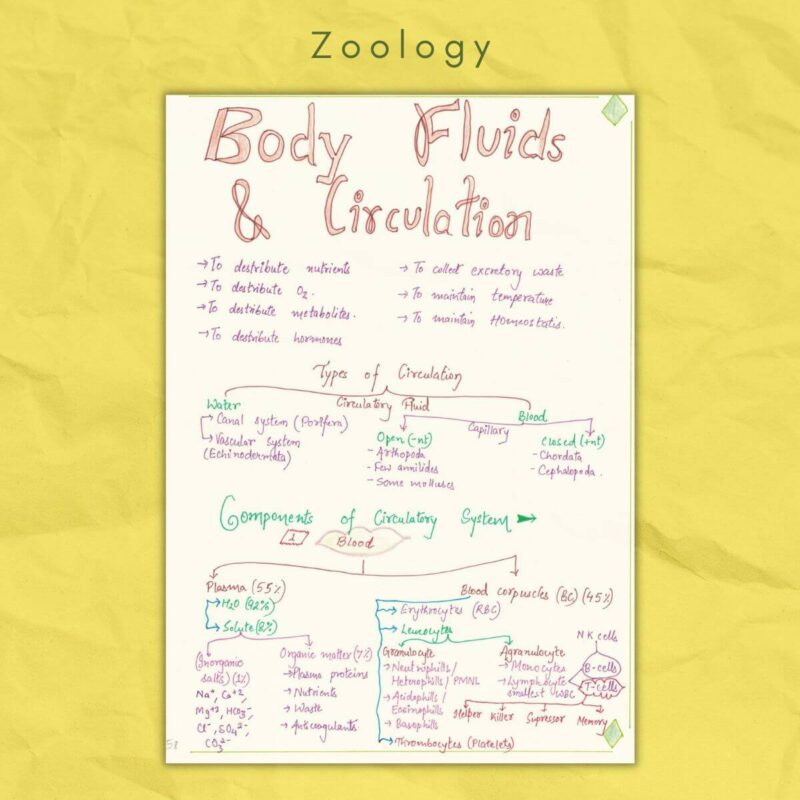 Zoology
Body Fluids
& Circulation
→ To destribute nutrients
→ To destribute O2.
→ To destribute metabolites.
→ To destribute hormones
→ To collect excretory waste
→ To maintain temperature
→ To maintain Homeostatis.
Types of Circulation
Circulatory Fluid
Water
→ Canal system (Porifera)
→ Vascular system
(Echinodermata)
Blood
Capillary
Open (-nt)
- Arthopoda
- Few annilides
- Some molluscs
Closed (+nt)
- Chordata
- Cephalopoda.
Components of Circulatory System
1 Blood
Plasma (55%)
→ H2O (92%)
→ Solute (8%)
(Inorganic
salts) (1%)
Na+, Ca+2,
Mg+2, HCO3-,
Cl-, SO4 2-,
CO3 2-
Organic matter (7%)
→ Plasma proteins
→ Nutrients
→ Waste
→ Anticoagulants
Blood corpuscles (BC) (45%)
→ Erythrocytes (RBC)
→ Leucocytes
Granulocyte
→ Neutrophills/
Heterophills/PMNL
→ Acidophills/
Eosinophills
→ Basophills
Agranulocyte
→ Monocytes
→ Lymphocyte
smallest WBC
NK cells
B-cells
T-cells
Helper Killer Supressor Memory
→ Thrombocytes (Platelets)
58